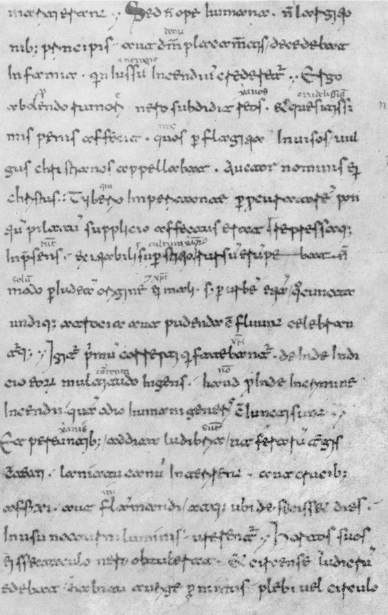 Sed n ope humana. n largitio
nib; principis. aut dm placamtis; decedebat
Infamia. qn iussu Incendiu credetr. Ergo
abolendo rumori. nero subdidit reos. & quesitissi
mis penis affecit. quos p flagitia Inuisos; uul
gus christianos appellabat. Auctor nominis ei
christus. Tiberio Imperitante p pcuratore pon
tiu pilatu supplicio affectus erat. repressaq;
Inpsens. exitiabilis supstitio rursu erupe bat. n
modo p iudea origine ei mali. s. p urbe etia quo cuncta
undiq; atrocia aut pudenda cfluunt celebran
tq; Igit primu correpti q fatebant. deinde Indi
cio eoru multitudo Ingens. haud pinde Incrimine
Incendii qua odio humani generis c iuncti sunt.
Et pereuntib; addita ludibria; ut feraru tgis
laniatu canu Interirent. aut crucib;
affixi. aut flammandi. atq; ubi defecisset dies.
Inusu nocturni luminis. urerent. Hortos suos
ei spectaculo nero obtulerat. & circense ludicru
edebat. habitu aurige pmixtus plebi uel circulo